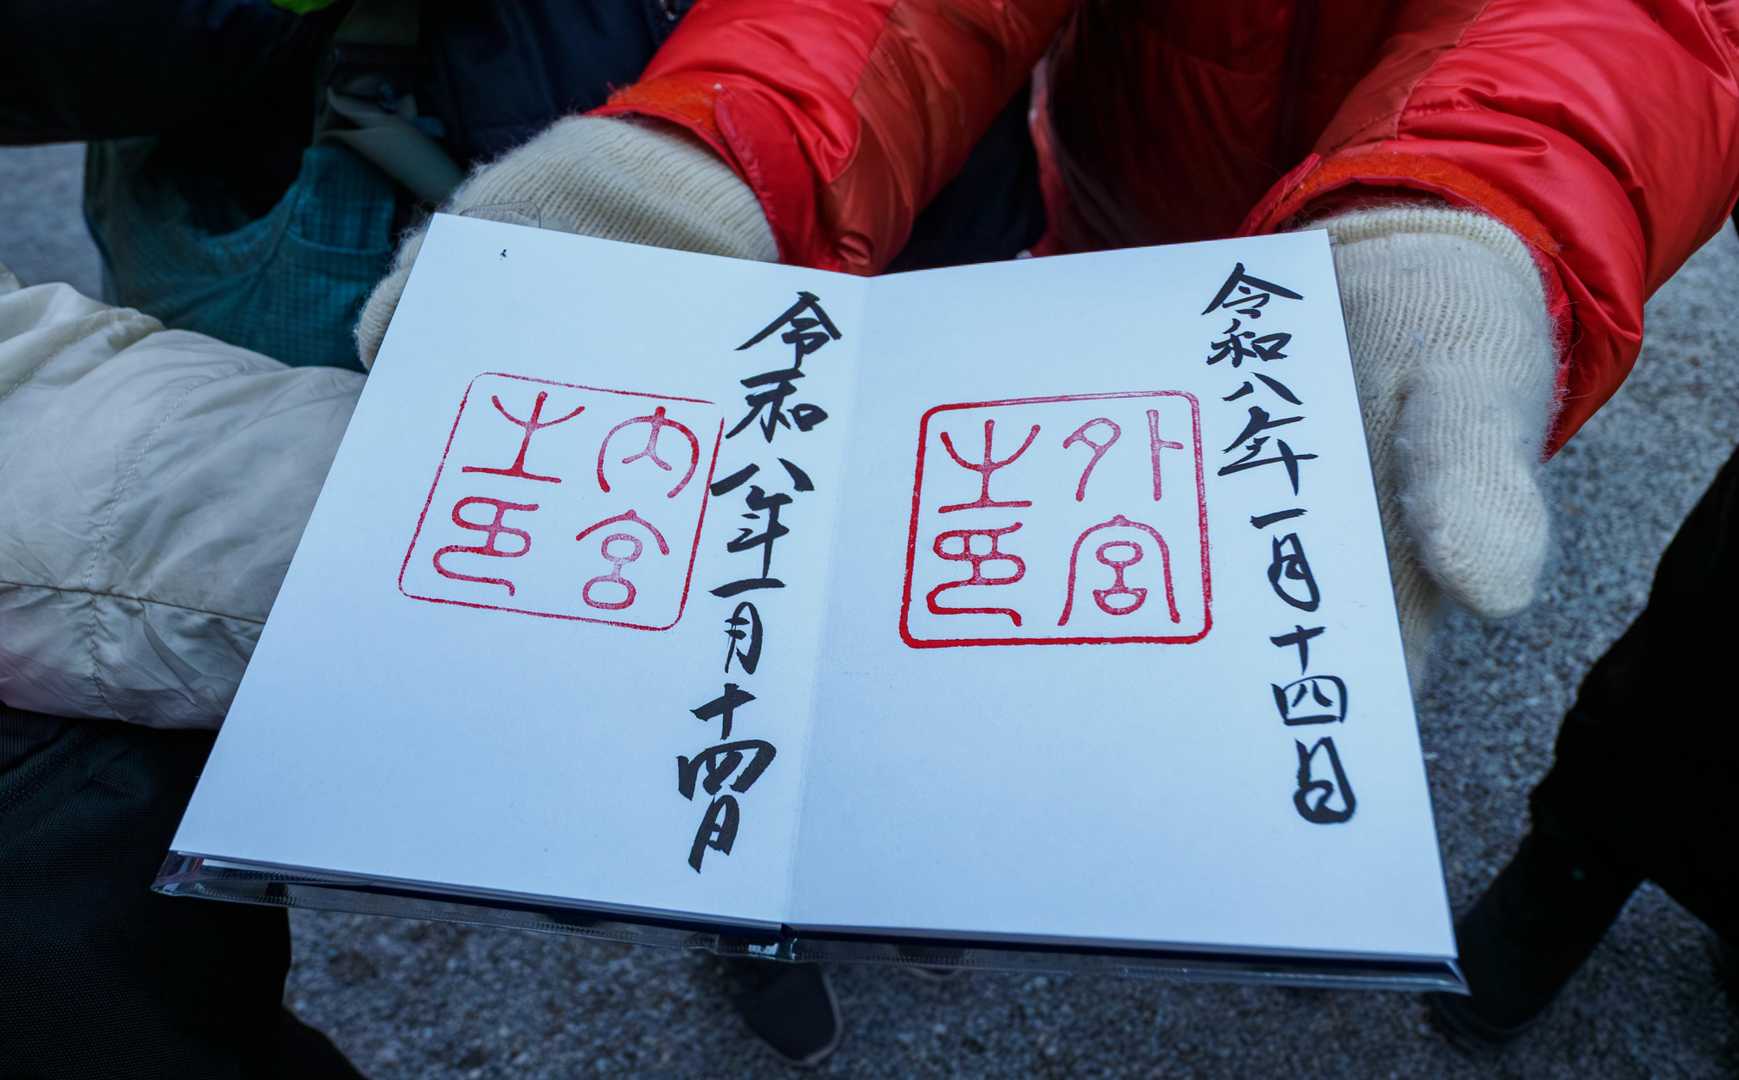 令和八年一月十四日
外宮
之印
令和八年一月十四日
内宮
之印